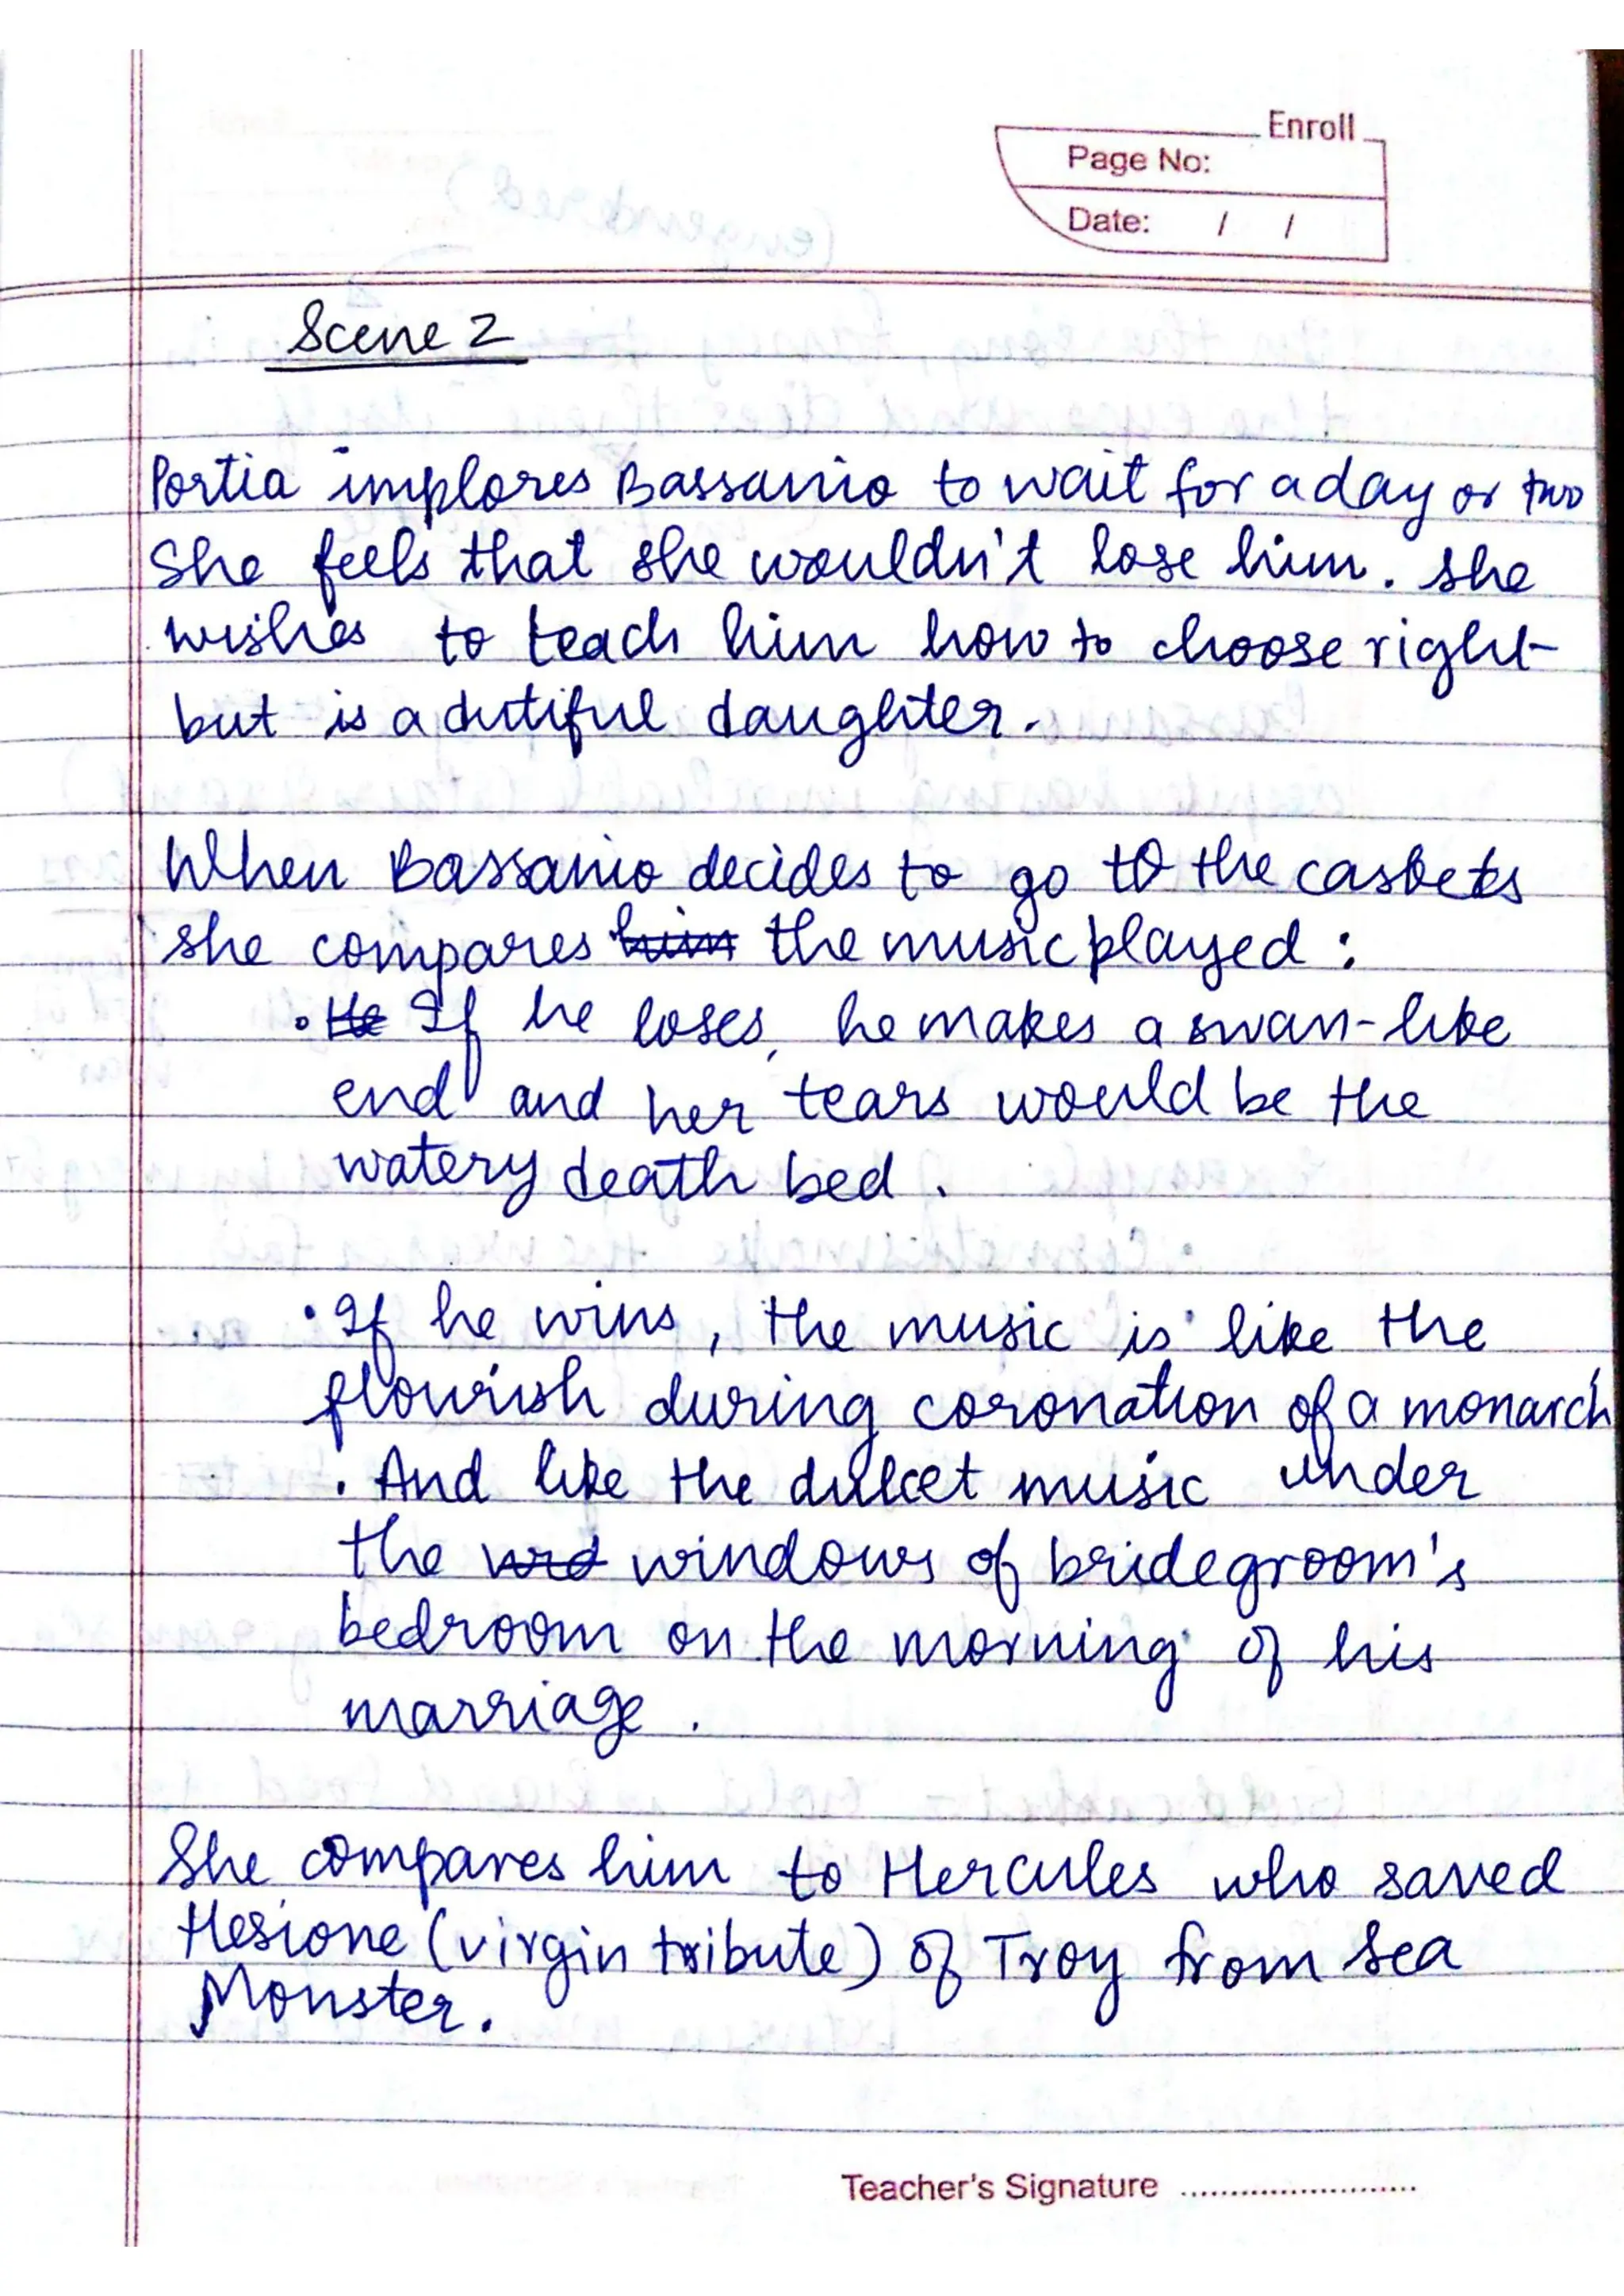 Enroll
Page No:
Date: / /
Scene 2
Portia implores Bassanio to wait for a day or two
She feels that she wouldn't lose him. She
wishes to teach him how to choose right
but is a dutiful daughter.
When Bassanio decides to go to the caskets
she compares him the music played :
• He If he loses, he makes a swan-like
end and her tears would be the
watery death bed.
• If he wins, the music is like the
flourish during coronation of a monarch
. And like the dulcet music under
the wid windows of bridegroom's
bedroom on the morning of his
marriage.
She compares him to Hercules who saved
Hesione (virgin tribute) of Troy from Sea
Monster.
Teacher's Signature ........................